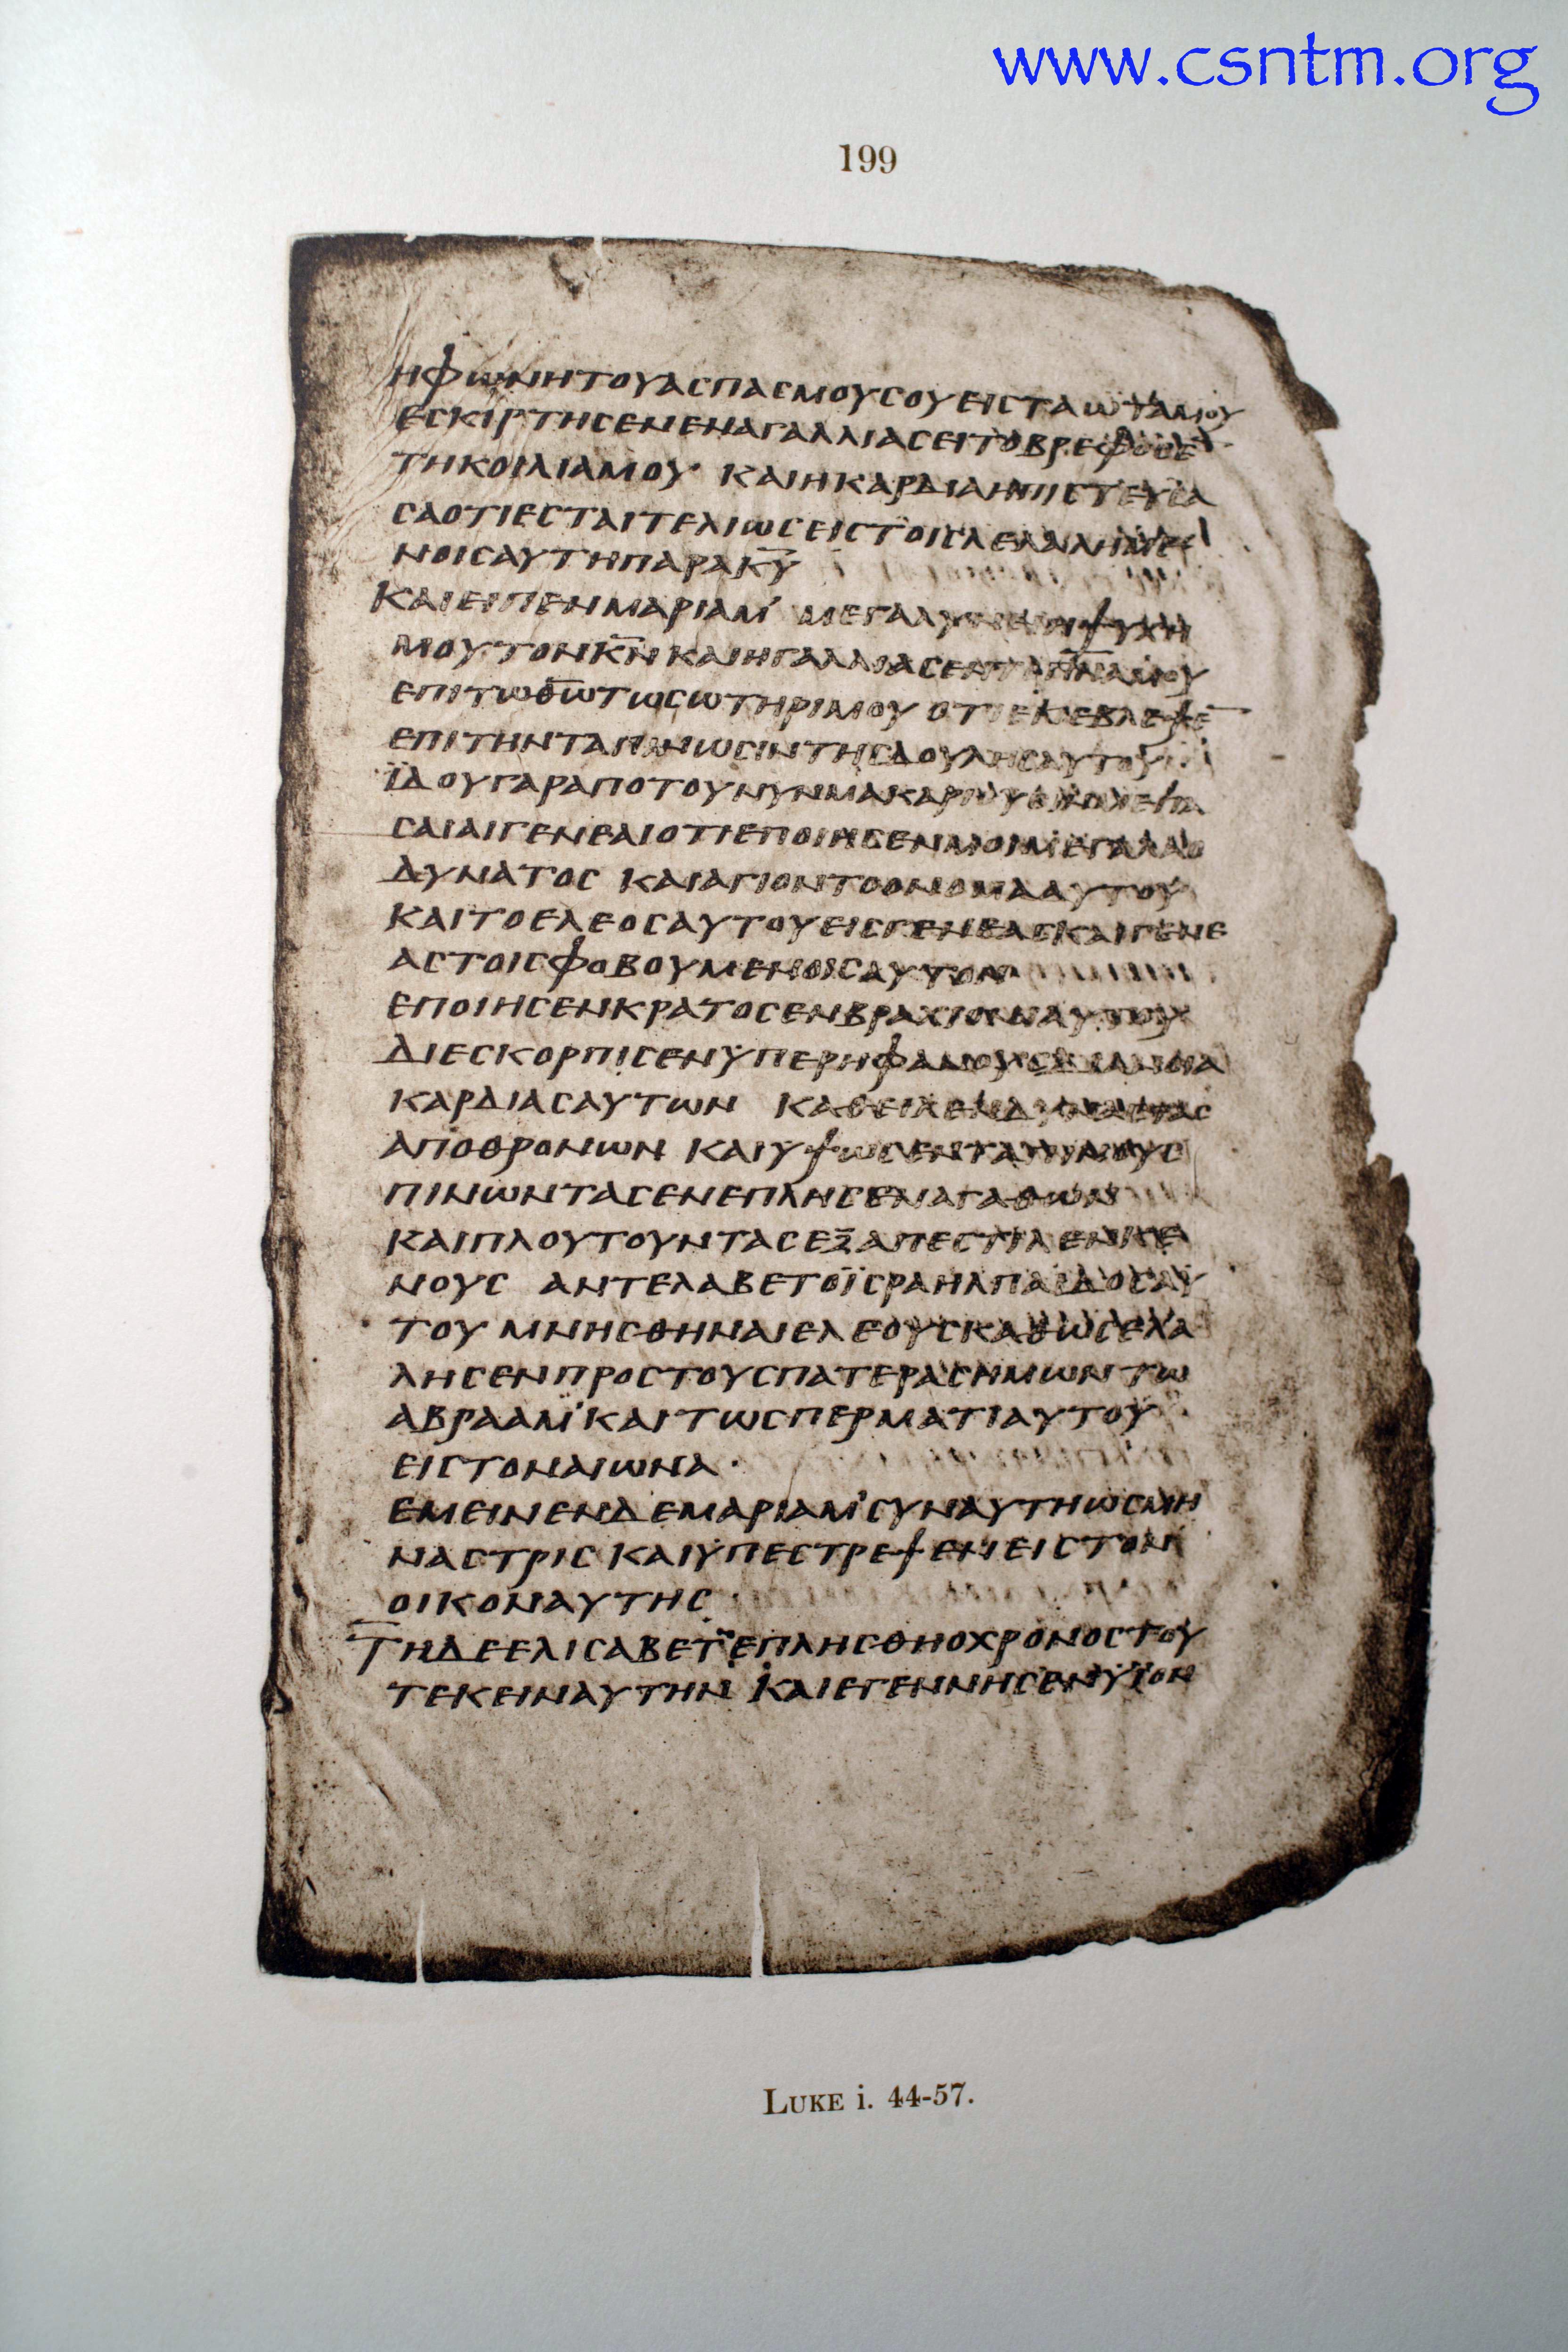 www.csntm.org
199
ΗΦΩΝΗΤΟΥΑСΠΑСΜΟΥСΟΥΕΙСΤΑΩΤΑΜΟΥ
ΕСΚΙΡΤΗСΕΝΕΝΑΓΑΛΛΙΑСΕΙΤΟΒΡΕΦΟСΕ
ΤΗΚΟΙΛΙΑΜΟΥ· ΚΑΙΗ ΚΑΡΔΙΑΗΠΙСΤΕΥСΑ
СΑΟΤΙΕСΤΑΙΤΕΛΙΩСΕΙСΤΟΙСΛΕΛΑΛΗΜΕ
ΝΟΙСΑΥΤΗΠΑΡΑΚ̅Υ̅
ΚΑΙΕΙΠΕΝΜΑΡΙΑΜ' ΜΕΓΑΛΥΝΕΙΗΨΥΧΗ
ΜΟΥΤΟΝΚ̅Ν̅ΚΑΙΗΓΑΛΛΙΑСΕΝΤΟΠ̅Ν̅Α̅ΜΟΥ
ΕΠΙΤΩΘ̅Ω̅ΤΩСΩΤΗΡΙΜΟΥ ΟΤΙΕΠΕΒΛΕΨΕ̅
ΕΠΙΤΗΝΤΑΠΙΝΩСΙΝΤΗСΔΟΥΛΗСΑΥΤΟΥ
ΪΔΟΥΓΑΡΑΠΟΤΟΥΝΥΝΜΑΚΑΡΙΟΥСΙΝΜΕΠΑ
СΑΙΑΙΓΕΝΕΑΙΟΤΙΕΠΟΙΗСΕΝΜΟΙΜΕΓΑΛΑΟ
ΔΥΝΑΤΟС ΚΑΙΑΓΙΟΝΤΟΟΝΟΜΑΑΥΤΟΥ
ΚΑΙΤΟΕΛΕΟСΑΥΤΟΥΕΙСΓΕΝΕΑСΚΑΙΓΕΝΕ
ΑСΤΟΙСΦΟΒΟΥΜΕΝΟΙСΑΥΤΟΝ
ΕΠΟΙΗСΕΝΚΡΑΤΟСΕΝΒΡΑΧΙΟΝΙΑΥΤΟΥ
ΔΙΕСΚΟΡΠΙСΕΝΫΠΕΡΗΦΑΝΟΥСΔΙΑΝΟΙΑ
ΚΑΡΔΙΑСΑΥΤΩΝ ΚΑΘΕΙΛΕΝΔΥΝΑСΤΑС
ΑΠΟΘΡΟΝΩΝ ΚΑΙΥΨΩСΕΝΤΑΠΙΝΟΥС
ΠΙΝΩΝΤΑСΕΝΕΠΛΗСΕΝΑΓΑΘΩΝ
ΚΑΙΠΛΟΥΤΟΥΝΤΑСΕΞΑΠΕСΤΙΛΕΝΚΕ
ΝΟΥС ΑΝΤΕΛΑΒΕΤΟΪСΡΑΗΛΠΑΙΔΟСΑΥ
ΤΟΥ ΜΝΗСΘΗΝΑΙΕΛΕΟΥСΚΑΘΩСΕΛΑ
ΛΗСΕΝΠΡΟСΤΟΥСΠΑΤΕΡΑСΗΜΩΝΤΩ
ΑΒΡΑΑΜ'ΚΑΙΤΩСΠΕΡΜΑΤΙΑΥΤΟΥ
ΕΙСΤΟΝΑΙΩΝΑ·
ΕΜΕΙΝΕΝΔΕΜΑΡΙΑΜ'СΥΝΑΥΤΗΩСΜΗ
ΝΑСΤΡΙС ΚΑΙΫΠΕСΤΡΕΨΕΝΕΙСΤΟΝ
ΟΙΚΟΝΑΥΤΗС·
ΤΗΔΕΕΛΙСΑΒΕΤ'ΕΠΛΗСΘΗΟΧΡΟΝΟСΤΟΥ
ΤΕΚΕΙΝΑΥΤΗΝ ΚΑΙΕΓΕΝΝΗСΕΝΥΪΟΝ
LUKE i. 44-57.